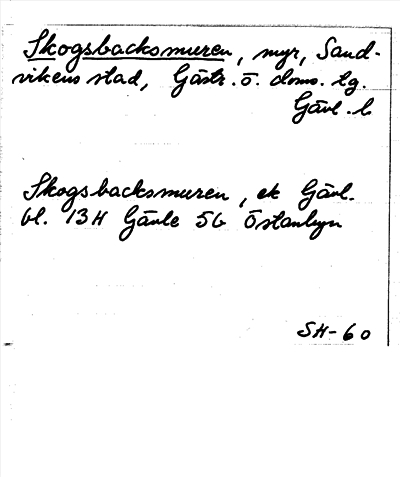 Skogsbacksmuren, myr, Sand-
vikens stad, Gästr. ö. doms. tg.
Gävl. l.
Skogsbacksmuren, ek Gävl.
bl. 13H Gävle 5G Östanbyn
SH-60